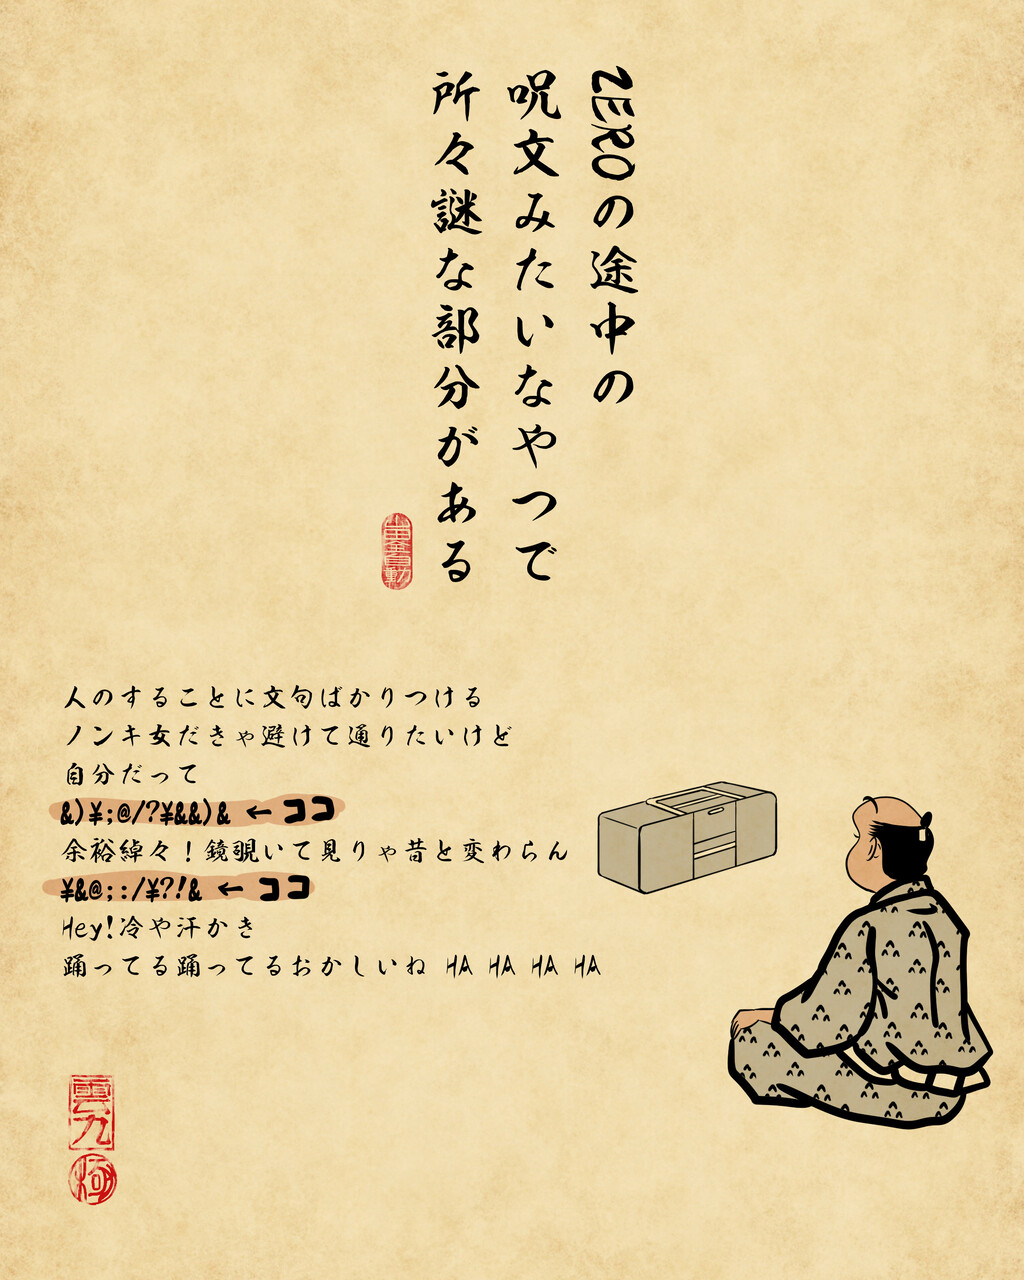 ZEROの途中の
呪文みたいなやつで
所々謎な部分がある
人のすることに文句ばかりつける
ノンキ女だきゃ避けて通りたいけど
自分だって
&)¥;@/?¥&&)& ← ココ
余裕綽々！鏡覗いて見りゃ昔と変わらん
¥&@;:/¥?!& ← ココ
Hey!冷や汗かき
踊ってる踊ってるおかしいね HA HA HA HA